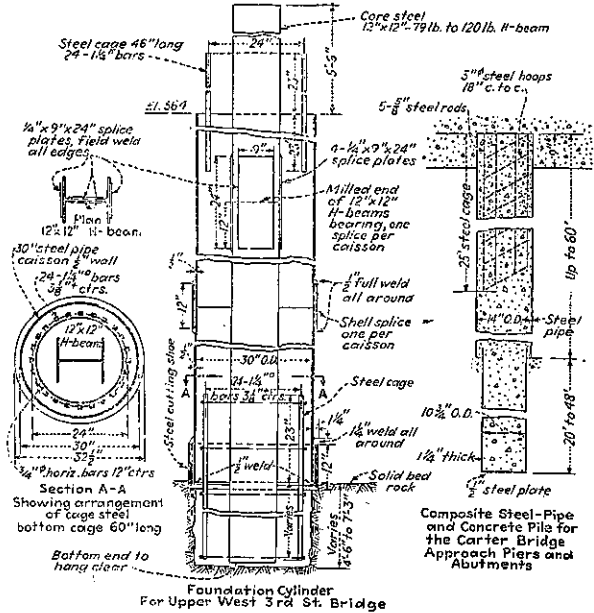 Core steel
12"x12"-79 lb. to 120 lb. H-beam
Steel cage 46" long
24-1¼" bars
24"
23"
5'-5"
El. 564
¼"x9"x24" splice
plates, field weld
all edges
9"
4-¼"x9"x24"
splice plates
24"
12"
Milled end
of 12"x12"
H-beams
bearing, one
splice per
caisson
Plan
12"x12" H-beam
30" steel pipe
caisson ½" wall
24-1¼"⌀ bars
3⅛"± ctrs.
12"x12"
H-beam
24"
30"
32½"
¾"⌀ horiz. bars 12" ctrs
Section A-A
Showing arrangement
of cage steel
bottom cage 60" long
12"
½" full weld
all around
Shell splice
one per
caisson
30" O.D.
A
A
24-1¼"⌀
bars 3⅛" ctrs.
Steel cutting shoe
Steel cage
23"
1¼"
1¼" weld all
around
12"
½" weld
Solid bed
rock
Varies
Varies
4'-6" to 7'-3"
Bottom end to
hang clear
Foundation Cylinder
For Upper West 3rd St. Bridge
3"⌀ steel hoops
18" c. to c.
5-⅝" steel rods
9"
25' steel cage
Up to 60'
14" O.D.
Steel
pipe
10¾" O.D.
1¼" thick
20' to 48'
½" steel plate
Composite Steel-Pipe
and Concrete Pile for
the Carter Bridge
Approach Piers and
Abutments